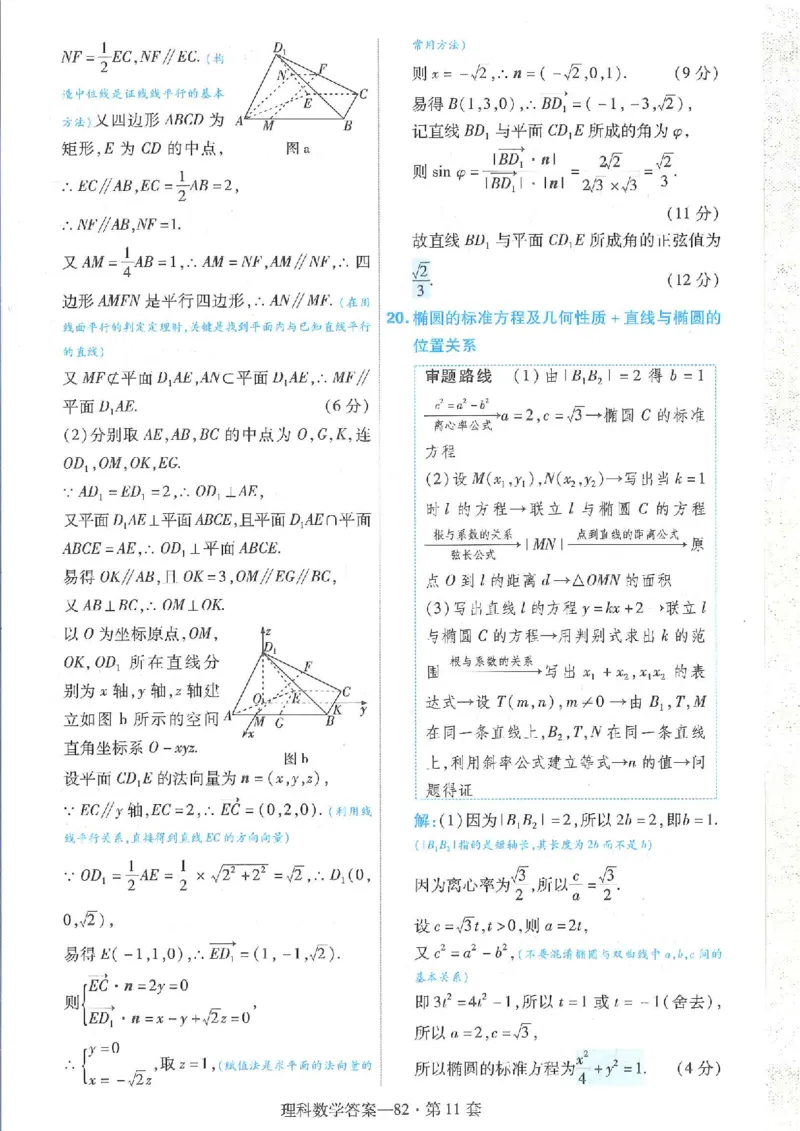 NF=1/2EC,NF∥EC.(构
造中位线是证线线平行的基本
方法)又四边形 ABCD 为
矩形,E 为 CD 的中点,
∴EC∥AB,EC=1/2AB=2,
∴NF∥AB,NF=1.
D₁
N
F
E
C
A
M
B
图 a
又 AM=1/4AB=1,∴AM=NF,AM∥NF,∴四
边形 AMFN 是平行四边形,∴AN∥MF.(在用
线面平行的判定定理时,关键是找到平面内与已知直线平行
的直线)
又 MF⊄平面 D₁AE,AN⊂平面 D₁AE,∴MF∥
平面 D₁AE. (6 分)
(2)分别取 AE,AB,BC 的中点为 O,G,K,连
OD₁,OM,OK,EG.
∵AD₁=ED₁=2,∴OD₁⊥AE,
又平面 D₁AE⊥平面 ABCE,且平面 D₁AE∩平面
ABCE=AE,∴OD₁⊥平面 ABCE.
易得 OK∥AB,且 OK=3,OM∥EG∥BC,
又 AB⊥BC,∴OM⊥OK.
以 O 为坐标原点,OM,
OK,OD₁ 所在直线分
别为 x 轴,y 轴,z 轴建
立如图 b 所示的空间
直角坐标系 O-xyz.
z
D₁
F
O
E
C
K
y
A
M
G
B
x
图 b
设平面 CD₁E 的法向量为 n=(x,y,z),
∵EC∥y 轴,EC=2,∴EC→=(0,2,0).(利用线
线平行关系,直接得到直线 EC 的方向向量)
∵OD₁=1/2AE=1/2×√(2²+2²)=√2,∴D₁(0,
0,√2),
易得 E(-1,1,0),∴ED₁→=(1,-1,√2).
则{EC→·n=2y=0
ED₁→·n=x-y+√2z=0,
∴{y=0
x=-√2z,取 z=1,(赋值法是求平面的法向量的
常用方法)
则 x=-√2,∴n=(-√2,0,1). (9 分)
易得 B(1,3,0),∴BD₁→=(-1,-3,√2),
记直线 BD₁ 与平面 CD₁E 所成的角为 φ,
则 sin φ=|BD₁→·n|/(|BD₁→|·|n|)=2√2/(2√3×√3)=√2/3.
(11 分)
故直线 BD₁ 与平面 CD₁E 所成角的正弦值为
√2/3. (12 分)
20.椭圆的标准方程及几何性质+直线与椭圆的
位置关系
审题路线 (1)由|B₁B₂|=2 得 b=1
c²=a²-b²
离心率公式→a=2,c=√3→椭圆 C 的标准
方程
(2)设 M(x₁,y₁),N(x₂,y₂)→写出当 k=1
时 l 的方程→联立 l 与椭圆 C 的方程
根与系数的关系 弦长公式→|MN| 点到直线的距离公式→原
点 O 到 l 的距离 d→△OMN 的面积
(3)写出直线 l 的方程 y=kx+2→联立 l
与椭圆 C 的方程→用判别式求出 k 的范
围 根与系数的关系→写出 x₁+x₂,x₁x₂ 的表
达式→设 T(m,n),m≠0→由 B₁,T,M
在同一条直线上,B₂,T,N 在同一条直线
上,利用斜率公式建立等式→n 的值→问
题得证
解:(1)因为|B₁B₂|=2,所以 2b=2,即b=1.
(|B₁B₂|指的是短轴长,其长度为 2b 而不是 b)
因为离心率为√3/2,所以c/a=√3/2.
设 c=√3t,t>0,则 a=2t,
又 c²=a²-b²,(不要混淆椭圆与双曲线中 a,b,c 间的
基本关系)
即 3t²=4t²-1,所以 t=1 或 t=-1(舍去),
所以 a=2,c=√3,
所以椭圆的标准方程为x²/4+y²=1. (4 分)
理科数学答案—82·第 11 套